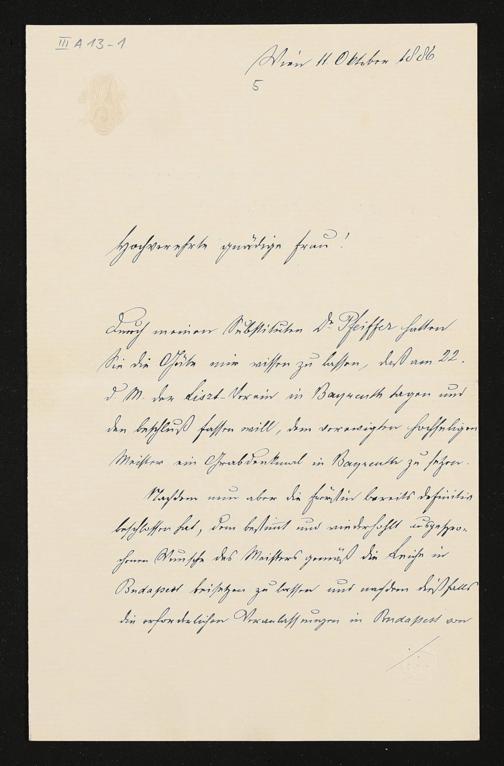 III A 13-1
Wien 11 Oktober 1886
5
Hochverehrte gnädige Frau!
Durch meinen Substituten Dr Pfeiffer hatten
Sie die Güte mir wissen zu lassen, daß am 22.
d. M. der Liszt-Verein in Bayreuth tagen und
den Beschluß fassen will, dem verewigten hochseligen
Meister ein Grabdenkmal in Bayreuth zu setzen.
Nachdem nun aber die Fürstin bereits definitiv
beschlossen hat, dem bestimmt und wiederholt ausgespro-
chenen Wunsche des Meisters gemäß die Leiche in
Budapest beisetzen zu lassen und nachdem dießfalls
die erforderlichen Veranlassungen in Budapest von